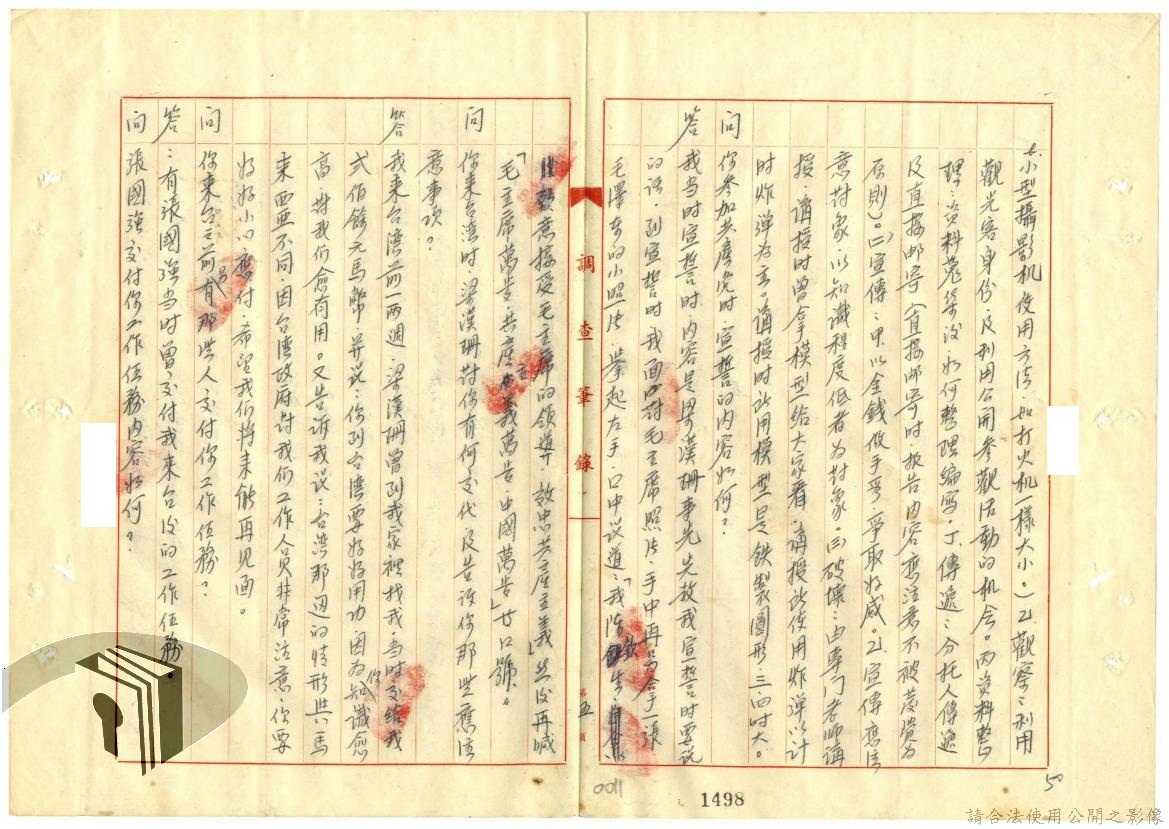 小型攝影机使用方法，如打火机一樣大小。）乙、觀察：利用
觀光客身份，及利用公開參觀活動的机会。丙、資料整
理：資料蒐集後，如何整理編寫。丁、傳遞：分托人傳遞
及直接郵寄（直接郵寄時，报告内容應注意不被發覺為
原則）。(二)宣傳：甲、以金錢做手段，爭取好感。乙、宣傳應注
意对象，以知識程度低者為对象。(三)破壞：由專门老师講
授，講授時曾拿模型给大家看，講授所使用炸弹以计
时炸弹为主。講授时所用模型是鉄製圓形三、四吋大。
问 你參加共產党时，宣誓的内容如何？
答 我当时宣誓时，内容是梁漢珊事先先教我宣誓时要説
的话，到宣誓时我面对毛主席照片，手中再另拿一張
毛澤東的小照片，举起左手，口中说道：「我陳欽生，
願意接受毛主席的领導，效忠共產主義」然后再喊
「毛主席萬岁，共產主義萬岁，中國萬岁」廿口號。
问 你来台湾时，梁漢珊对你有何交代，及告诉你那些應注
意事项？
答 我来台湾前一两週，梁漢珊曾到我家裡找我，当时交给我
弍佰餘元馬幣，并说：你到台湾要好好用功，因为你知識愈
高，对我们愈有用。又告诉我说：台湾那边的情形與馬
来西亚不同，因台湾政府对我们工作人员非常注意，你要
好好小心應付，希望我们将来能再见面。
问 你来台之前，另有那些人交付你工作任務？
答：有張國強当时曾交付我来台后的工作任務。
问 張國強交付你工作任務内容如何？
調查筆錄
第五頁
0011
1498
50
請合法使用公開之影像